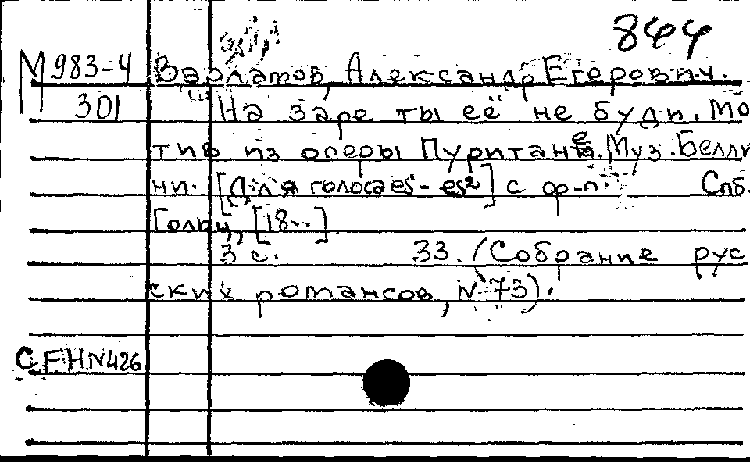 844
М 983-4 Варламов, Александр Егорович.
301 "На заре ты её не буди. Мо
тив из оперы Пуритане. Муз. Белли
ни. [Для голоса es¹-es²] с ф-п. Спб.
[18--]
3 с. 33. (Собрание рус
ских романсов, N 73).
С ЕНN426